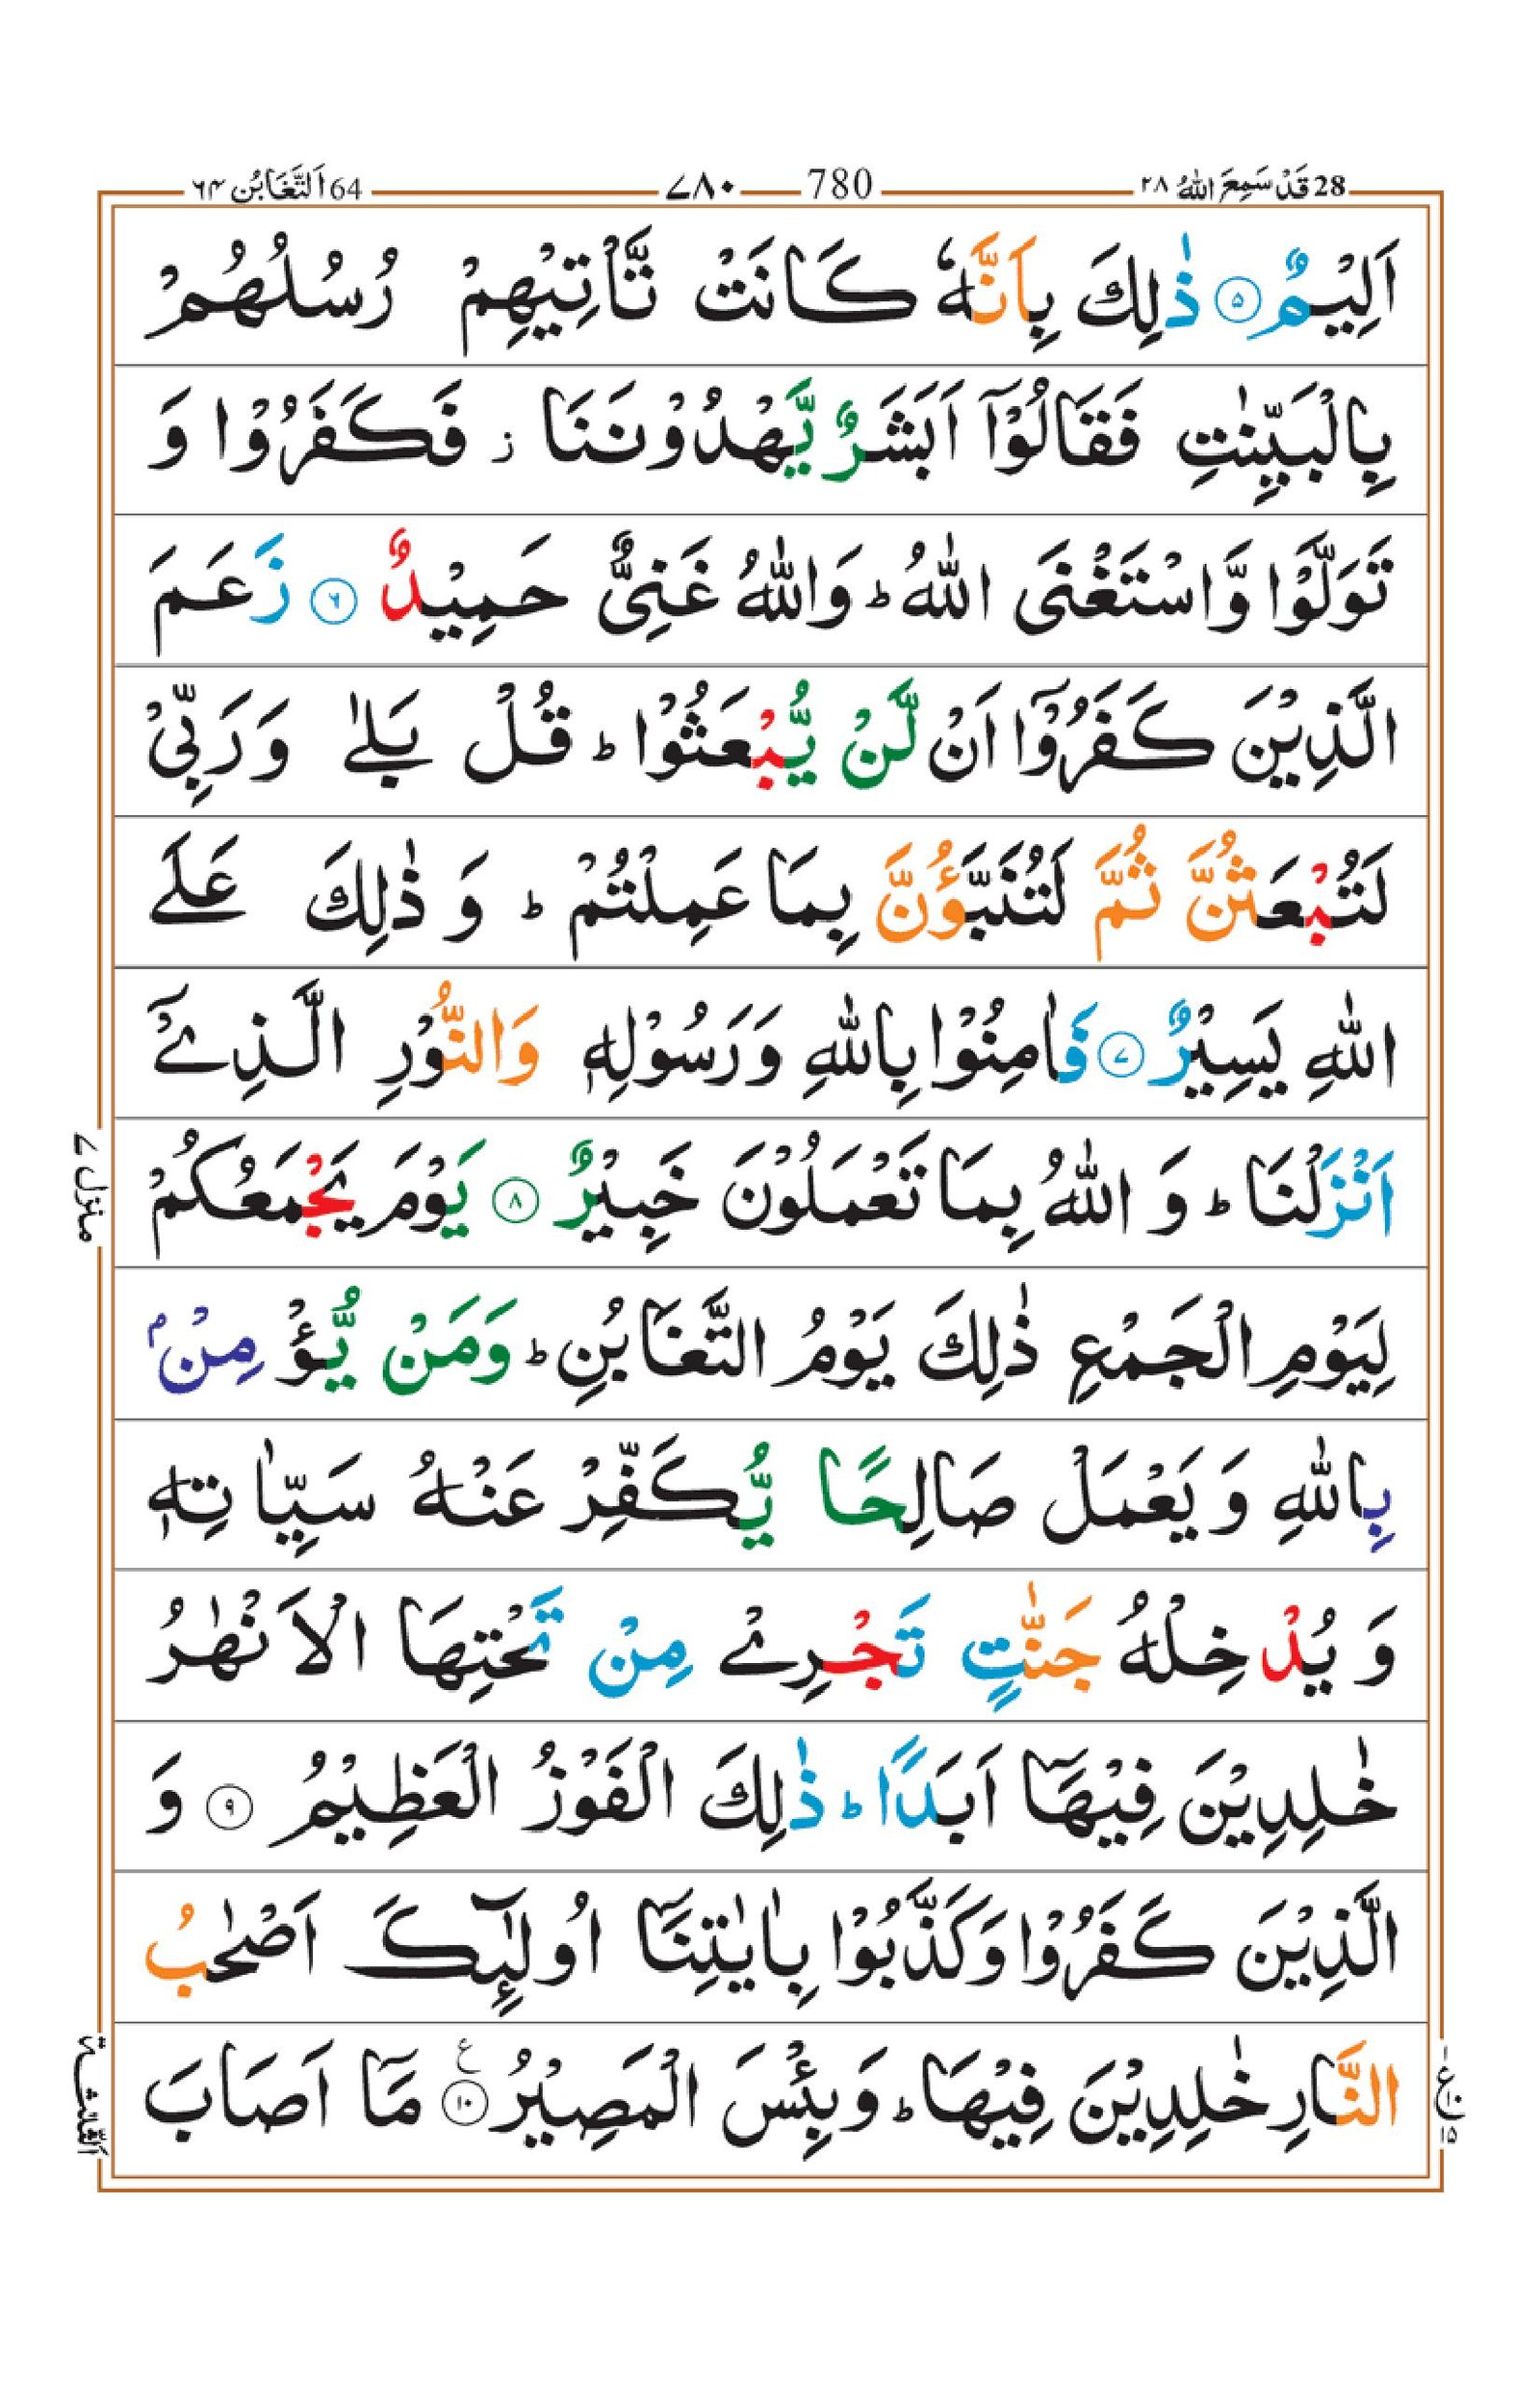 28 قَدْ سَمِعَ اللّٰهُ ٢٨
780 ٧٨٠
64 اَلتَّغَابُن ٦٤
اَلِيْمٌ ۝٥ ذٰلِكَ بِاَنَّهٗ كَانَتْ تَّاْتِيْهِمْ رُسُلُهُمْ
بِالْبَيِّنٰتِ فَقَالُوْۤا اَبَشَرٌ يَّهْدُوْنَنَا ؗ فَكَفَرُوْا وَ
تَوَلَّوْا وَّاسْتَغْنَى اللّٰهُ ؕ وَاللّٰهُ غَنِىٌّ حَمِيْدٌ ۝٦ زَعَمَ
الَّذِيْنَ كَفَرُوْۤا اَنْ لَّنْ يُّبْعَثُوْا ؕ قُلْ بَلٰے وَرَبِّىْ
لَتُبْعَثُنَّ ثُمَّ لَتُنَبَّؤُنَّ بِمَا عَمِلْتُمْ ؕ وَ ذٰلِكَ عَلَے
اللّٰهِ يَسِيْرٌ ۝٧ فَاٰمِنُوْا بِاللّٰهِ وَرَسُوْلِهٖ وَالنُّوْرِ الَّذِےْۤ
اَنْزَلْنَا ؕ وَ اللّٰهُ بِمَا تَعْمَلُوْنَ خَبِيْرٌ ۝٨ يَوْمَ يَجْمَعُكُمْ
لِيَوْمِ الْجَمْعِ ذٰلِكَ يَوْمُ التَّغَابُنِ ؕ وَمَنْ يُّؤْمِنْۢ
بِاللّٰهِ وَ يَعْمَلْ صَالِحًا يُّكَفِّرْ عَنْهُ سَيِّاٰتِهٖ
وَ يُدْخِلْهُ جَنّٰتٍ تَجْرِےْ مِنْ تَحْتِهَا الْاَنْهٰرُ
خٰلِدِيْنَ فِيْهَاۤ اَبَدًا ؕ ذٰلِكَ الْفَوْزُ الْعَظِيْمُ ۝٩ وَ
الَّذِيْنَ كَفَرُوْا وَكَذَّبُوْا بِاٰيٰتِنَاۤ اُولٰٓئِكَ اَصْحٰبُ
النَّارِ خٰلِدِيْنَ فِيْهَا ؕ وَبِئْسَ الْمَصِيْرُ ۝١٠ ع مَاۤ اَصَابَ
منزل ٧
الثلٰثة
ع ١٠ ١٥